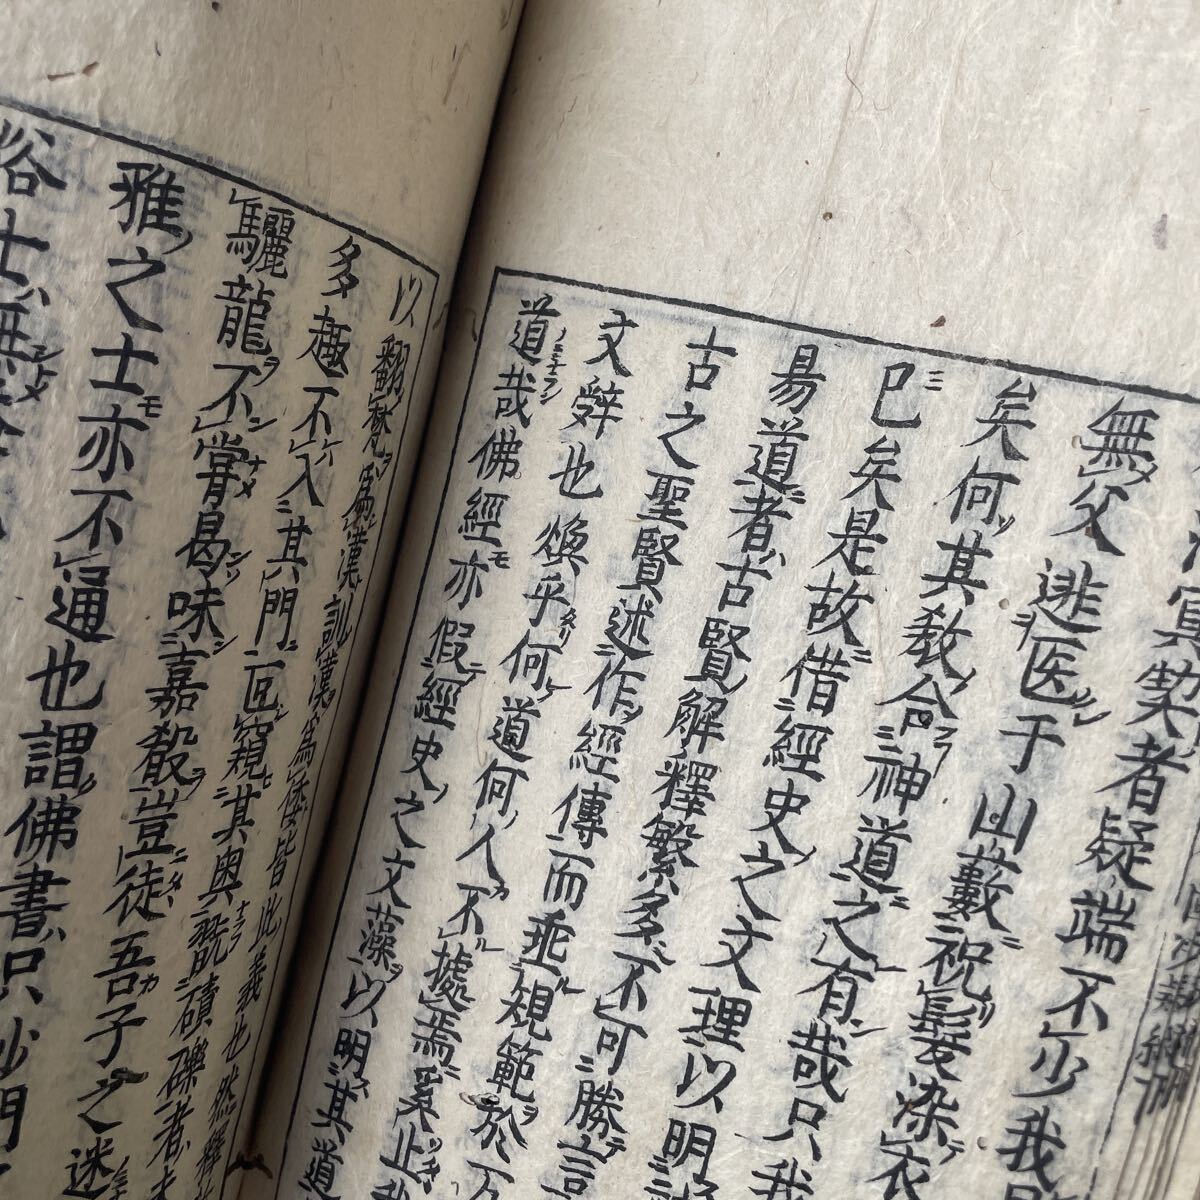 冥契者疑端不少我
無父逃医于山藪祝髮染衣
矣何其教合神道之有哉只我
已矣是故借經史之文理以明
易道者古賢解釋繁多不可勝言
古之聖賢述作經傳而垂規範於万
文辞也煥乎何道何人不據焉奚止我
道哉佛經亦假經史之文藻以明其道
以翻梵為漢訓漢為倭皆此義也然釋
多趣不入其門叵窺其奥翫磧礫者未
驪龍不甞曷味嘉殽豈徒吾子之迷
雅之士亦不通也謂佛書只沙門
俗士